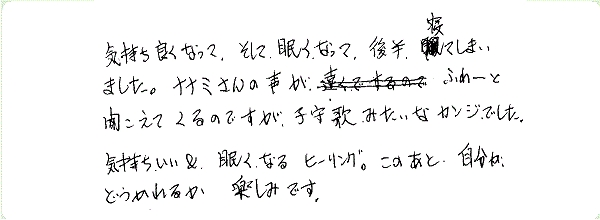 気持ち良くなって、そして眠くなって、後半、寝てしまい
ました。ナナミさんの声が、遠くでするので ふわーと
聞こえてくるのですが、子守歌みたいなカンジでした。
気持ちいい&眠くなるヒーリング。このあと、自分が、
どうかわれるか 楽しみです。